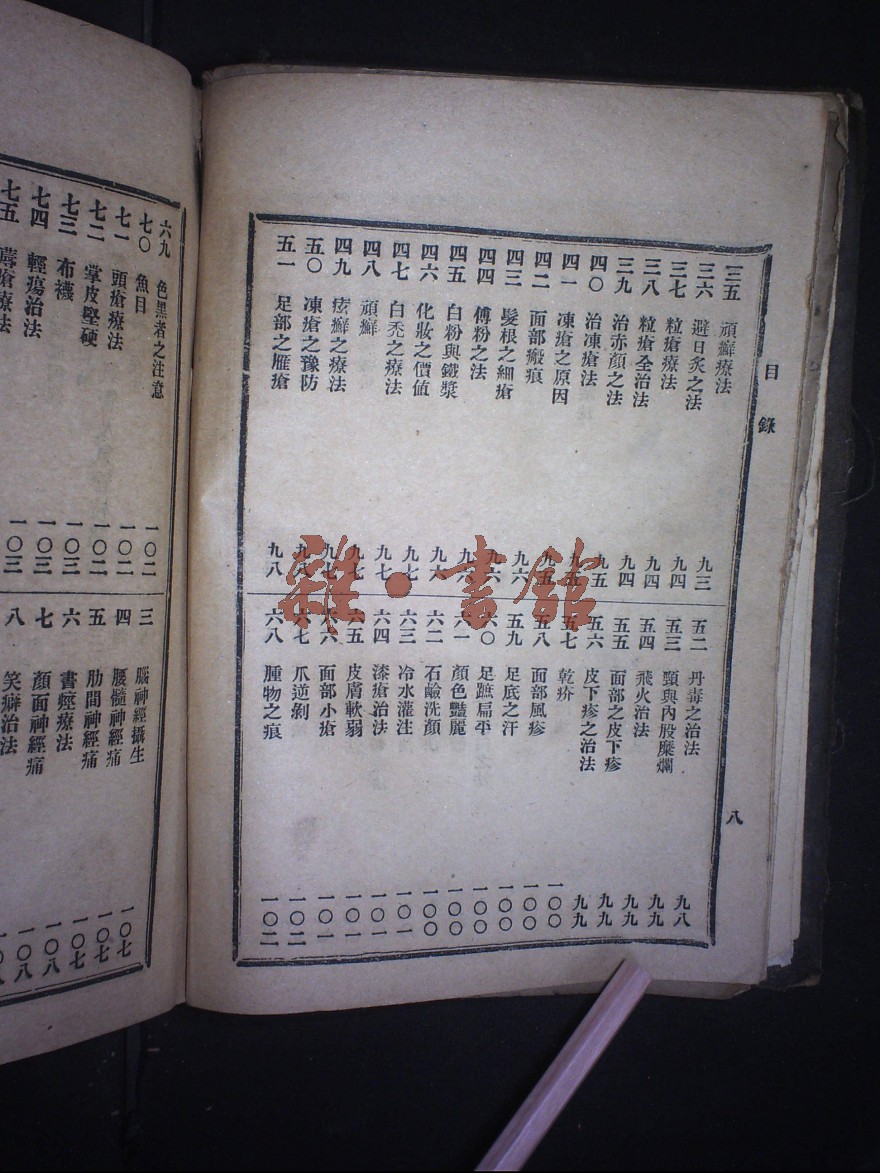 目錄
八
三五 頑癬療法 九三
三六 避日炙之法 九四
三七 粒瘡療法 九四
三八 粒瘡全治法 九四
三九 治赤顏之法 九五
四〇 治凍瘡法 九五
四一 凍瘡之原因 九五
四二 面部瘢痕 九六
四三 髮根之細瘡 九六
四四 傅粉之法 九六
四五 白粉與鐵漿 九六
四六 化妝之價值 九七
四七 白禿之療法 九七
四八 頑癬 九七
四九 痃癬之療法 九七
五〇 凍瘡之豫防 九八
五一 足部之雁瘡 九八
五二 丹毒之治法 九八
五三 頸與內股糜爛 九九
五四 飛火治法 九九
五五 面部之皮下疹 九九
五六 皮下疹之治法 九九
五七 乾疥 一〇〇
五八 面部風疹 一〇〇
五九 足底之汗 一〇〇
六〇 足蹠扁平 一〇〇
六一 顏色豔麗 一〇〇
六二 石鹼洗顏 一〇〇
六三 冷水灌注 一〇一
六四 漆瘡治法 一〇一
六五 皮膚軟弱 一〇一
六六 面部小瘡 一〇一
六七 爪逆剝 一〇二
六八 腫物之痕 一〇二
六九 色黑者之注意 一〇二
七〇 魚目 一〇二
七一 頭瘡療法 一〇二
七二 掌皮堅硬 一〇三
七三 布襪 一〇三
七四 輕瘍治法 一〇三
七五 瘡療法
三 腦神經攝生 一〇七
四 腰髓神經痛 一〇七
五 肋間神經痛 一〇七
六 書痙療法 一〇八
七 顏面神經痛 一〇八
八 笑癖治法
雜·書館